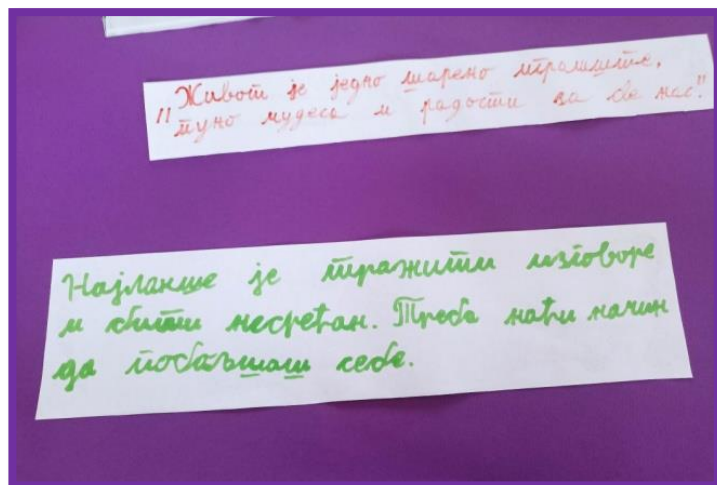 „Живот је једно шарено игралиште,
пуно чудеса и радости за све нас."
Најлакше је тражити изговоре
и бити несрећан. Треба наћи начин
да побољшаш себе.